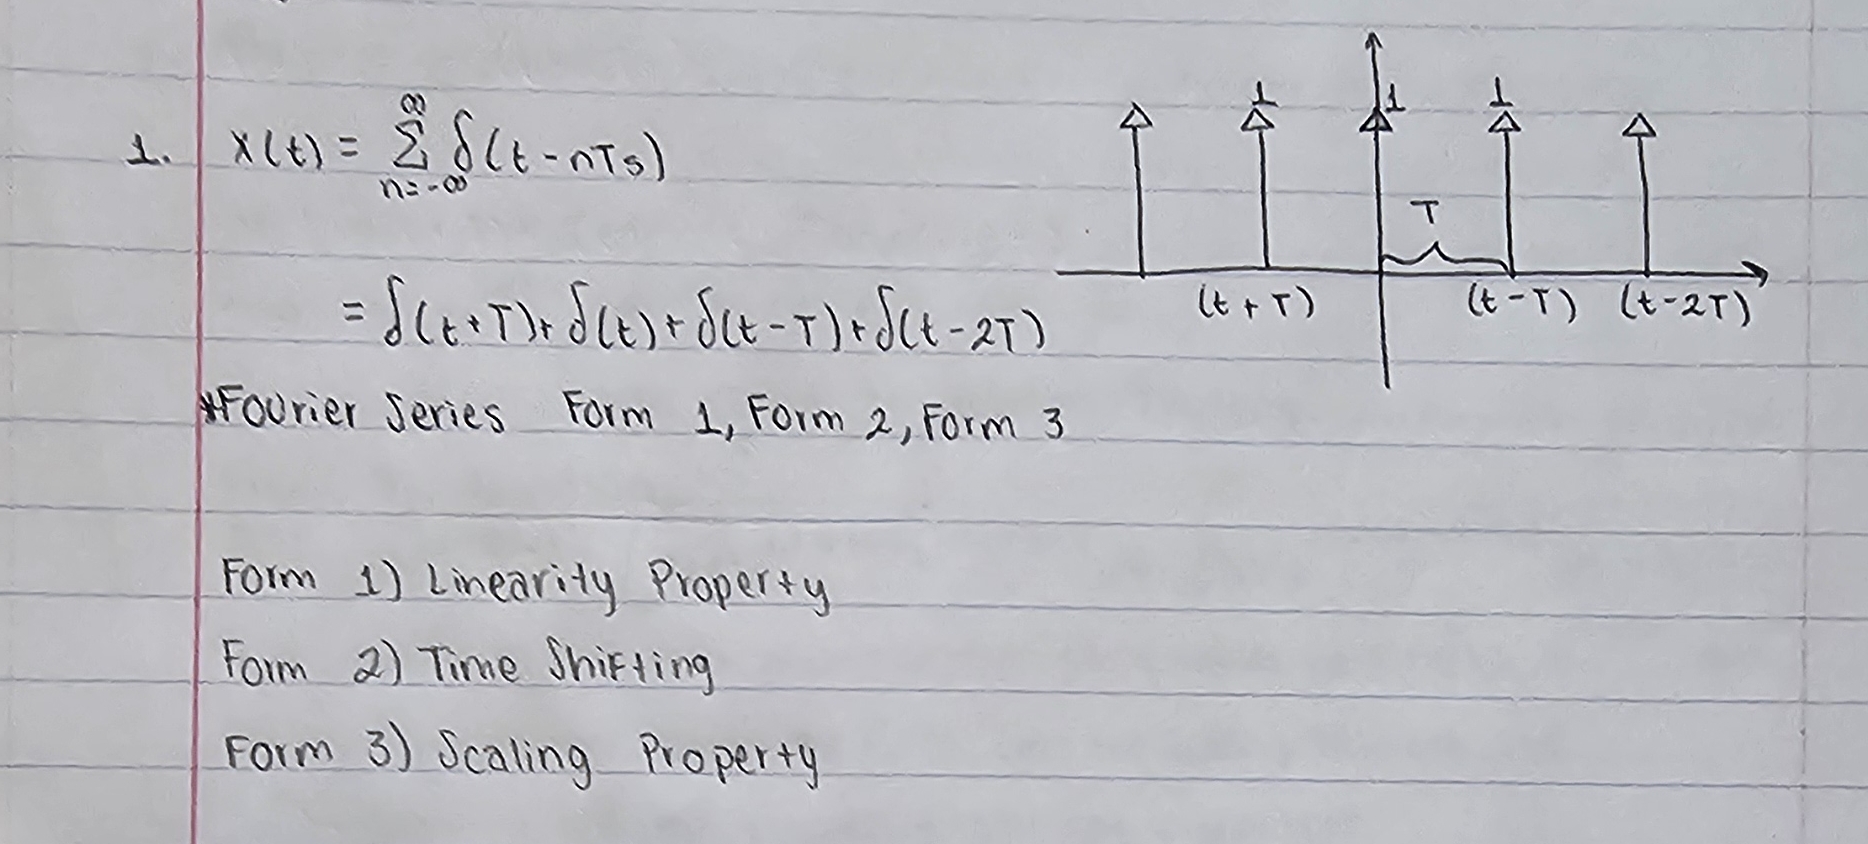 1. x(t) = ∞ Σ n=-∞ δ(t - nTs)
1 1 1
T
(t + T) (t - T) (t - 2T)
= δ(t+T) + δ(t) + δ(t - T) + δ(t - 2T)
*Fourier Series Form 1, Form 2, Form 3
Form 1) Linearity Property
Form 2) Time Shifting
Form 3) Scaling Property